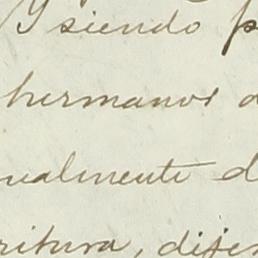 Y siendo p
hermanos d
ualmente d
ritura, dije